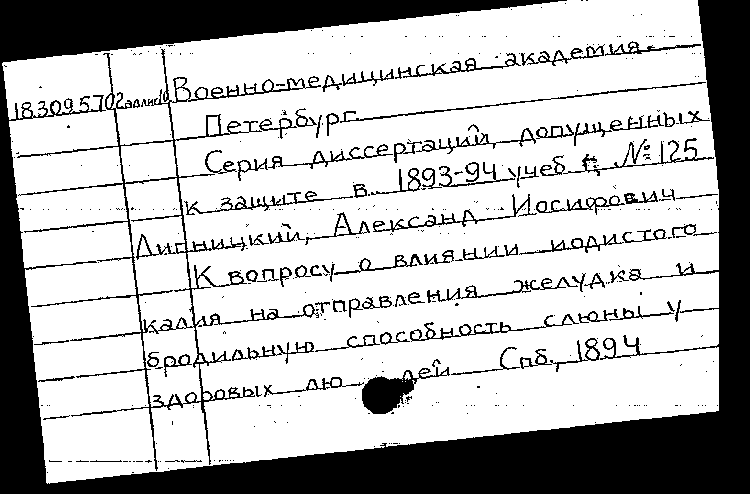 18.309.5.702 аллис10 Военно-медицинская академия.
Петербург.
Серия диссертаций, допущенных
к защите в 1893-94 учеб. г. №125
Липницкий, Александр Иосифович
К вопросу о влиянии иодистого
калия на отправления желудка и
бродильную способность слюны у
здоровых людей Спб., 1894